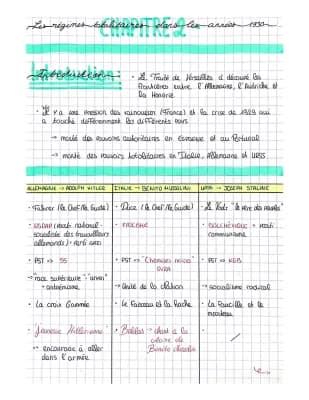 Les régimes totalitaires dans les années 1930
CHAPITRE 2
Introduction :
• Le Traité de Versailles a découpé les
frontières entre l'Allemagne, l'Autriche et
la Hongrie
• Il y a une pression des vainqueurs (France) et la crise de 1929 qui
a touché différemment les différents pays.
→ monté des pouvoirs autoritaires en Espagne et au Portugal
→ monté des pouvoirs totalitaires en Italie, Allemagne et URSS.
ALLEMAGNE → ADOLPH HITLER
• Führer (Le Chef/le Guide)
• NSDAP (parti national-
socialiste des travailleurs
allemands) = parti
• PST => SS
→ "race supérieure" : "arien"
+ antisémisme
• La croix Gammée
• Jeunesse Hitlérienne
=> encourage à aller
dans l'armée
ITALIE → BENITO MUSSOLINI
• Duce (Le Chef/le Guide)
• FASCISME
• PST => "Chemises noires"
OVRA
→ Unité de la Nation
• Le Faisceau et la Hache
• Balilas → dont à la
gloire de
Benito
URSS → JOSEPH STALINE
• Le Vojd "le père des peuples"
• BOLCHÉVIQUE = parti
communisme
• PST => KGB
→ socialisme radical
• La Faucille et le
marteau